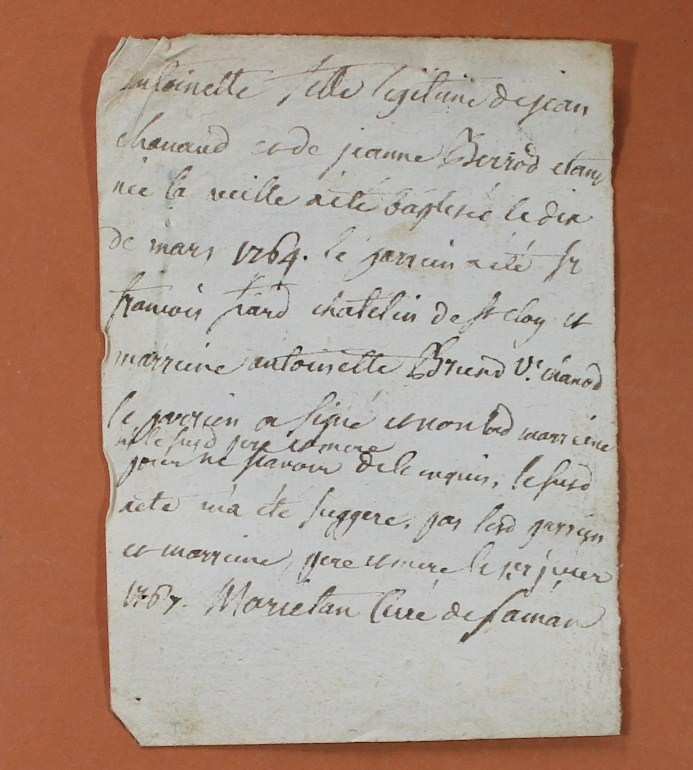 antoinette fille legitime de jean
chanard et de jeanne Berrod etant
née la veille a eté baptisée le dix
de mars 1764. le parrein a eté Sr
françois piard chatelin de St Cloy et
marreine antoinette Brund Ve.
le parrein a signé et non lad marreine
ni le susd pere et mere
pour ne savoir de le enquis, le susd
acte m'a eté suggere, par lesd parrein
et marreine, pere et mere le 1er jvier
1767. Marietan Curé de